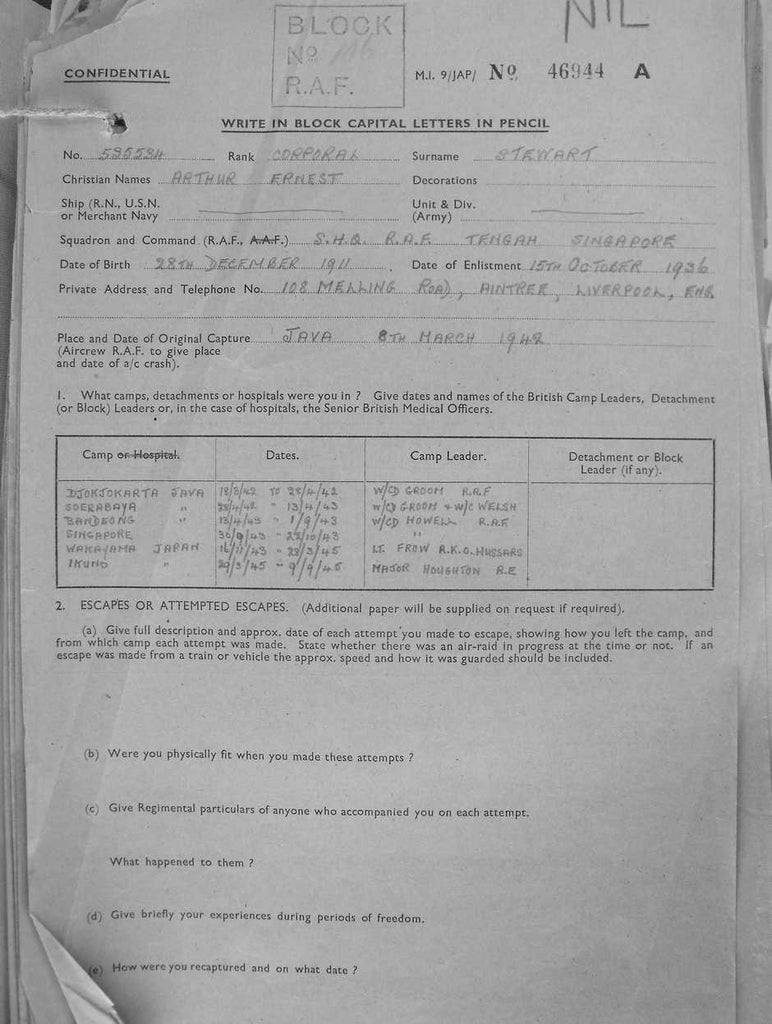 NIL
BLOCK
No 116
R.A.F.
CONFIDENTIAL
M.I. 9/JAP/ No. 46944 A
WRITE IN BLOCK CAPITAL LETTERS IN PENCIL
No. 535534 Rank CORPORAL Surname STEWART
Christian Names ARTHUR ERNEST Decorations
Ship (R.N., U.S.N. Unit & Div.
or Merchant Navy (Army)
Squadron and Command (R.A.F., A.A.F.) S.H.Q. R.A.F. TENGAH SINGAPORE
Date of Birth 28TH DECEMBER 1911 Date of Enlistment 15TH OCTOBER 1936
Private Address and Telephone No. 108 MELLING ROAD, AINTREE, LIVERPOOL, ENG.
Place and Date of Original Capture JAVA 8TH MARCH 1942
(Aircrew R.A.F. to give place
and date of a/c crash).
1. What camps, detachments or hospitals were you in ? Give dates and names of the British Camp Leaders, Detachment
(or Block) Leaders or, in the case of hospitals, the Senior British Medical Officers.
Camp or Hospital. Dates. Camp Leader. Detachment or Block
Leader (if any).
DJOKJOKARTA JAVA 18/3/42 TO 28/4/42 W/CD GROOM R.A.F
SOERABAYA " 28/4/42 " 13/4/43 W/CD GROOM + W/C WELSH
BANDEONG " 13/4/43 " 1/9/43 W/CD HOWELL R.A.F.
SINGAPORE 30/9/43 " 22/10/43 "
WAKAYAMA JAPAN 16/11/43 " 28/3/45 LT. FROW R.K.O. HUSSARS
IKUNO " 29/3/45 " 9/9/45 MAJOR HOUGHTON R.E
2. ESCAPES OR ATTEMPTED ESCAPES. (Additional paper will be supplied on request if required).
(a) Give full description and approx. date of each attempt you made to escape, showing how you left the camp, and
from which camp each attempt was made. State whether there was an air-raid in progress at the time or not. If an
escape was made from a train or vehicle the approx. speed and how it was guarded should be included.
(b) Were you physically fit when you made these attempts ?
(c) Give Regimental particulars of anyone who accompanied you on each attempt.
What happened to them ?
(d) Give briefly your experiences during periods of freedom.
(e) How were you recaptured and on what date ?